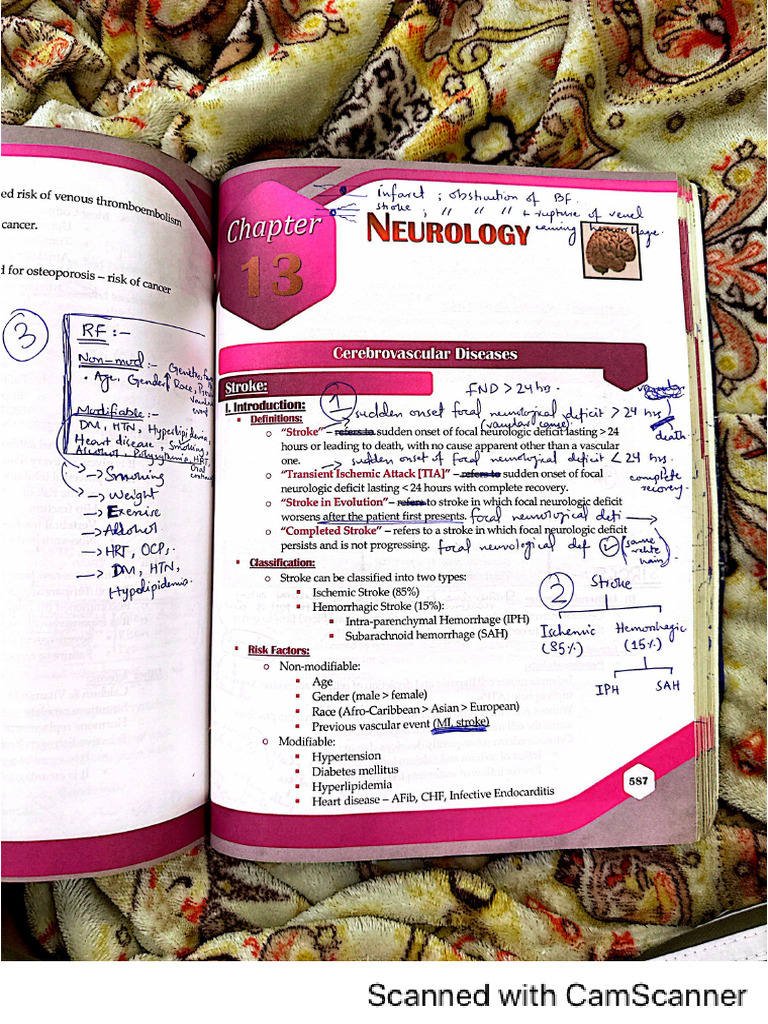 ed risk of venous thromboembolism
cancer.
d for osteoporosis – risk of cancer
3
RF :-
Non-mod :-
• Age, Gender, Race,
Modifiable :-
DM, HTN, Hyperlipidemia,
Heart disease, Smoking,
Alcohol, Polycythemia, HRT,
Oral
→ Smoking
→ Weight
→ Exercise
→ Alcohol
→ HRT, OCP,
→ DM, HTN,
Hypolipidemia.
infarct ; obstruction of BF.
stroke ; " " " + rupture of vessel
causing hemorrhage.
Chapter
13
NEUROLOGY
Cerebrovascular Diseases
Stroke:
FND > 24 hrs.
I. Introduction:
1
sudden onset focal neurological deficit > 24 hrs
(vascular cause)
death.
▪ Definitions:
o "Stroke" – refers to sudden onset of focal neurologic deficit lasting > 24
hours or leading to death, with no cause apparent other than a vascular
one.
→ sudden onset of focal neurological deficit < 24 hrs.
complete
recovery.
o "Transient Ischemic Attack [TIA]" – refers to sudden onset of focal
neurologic deficit lasting < 24 hours with complete recovery.
o "Stroke in Evolution" – refers to stroke in which focal neurologic deficit
worsens after the patient first presents. focal neurological defi →
o "Completed Stroke" – refers to a stroke in which focal neurologic deficit
persists and is not progressing. focal neurological def (same
▪ Classification:
o Stroke can be classified into two types:
▪ Ischemic Stroke (85%)
▪ Hemorrhagic Stroke (15%):
▪ Intra-parenchymal Hemorrhage (IPH)
▪ Subarachnoid hemorrhage (SAH)
2
Stroke
Ischemic Hemorrhagic
(85%) (15%)
IPH SAH
▪ Risk Factors:
o Non-modifiable:
▪ Age
▪ Gender (male > female)
▪ Race (Afro-Caribbean > Asian > European)
▪ Previous vascular event (MI, stroke)
o Modifiable:
▪ Hypertension
▪ Diabetes mellitus
▪ Hyperlipidemia
▪ Heart disease – AFib, CHF, Infective Endocarditis
587
Scanned with CamScanner